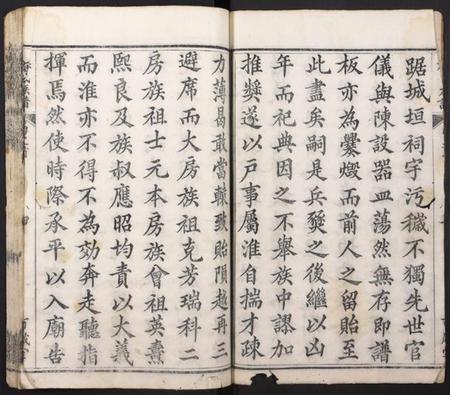 踞城垣祠宇污穢不獨先世官
儀與陳設器皿蕩然無存即譜
板亦為爨燬而前人之留貽至
此盡矣嗣是兵燹之後繼以凶
年而祀典因之不舉族中謬加
推奬遂以戶事屬淮自揣才疎
力薄曷敢當轅致貽隕越再三
避席而大房族祖克芳瑞科二
房族祖士元本房族曾祖英燾
熙良及族叔應昭均責以大義
而淮亦不得不為効奔走聽指
揮焉然使時際承平以入廟告